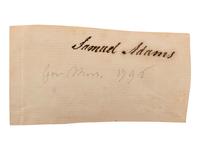 Samuel Adams
Gov Mass. 1796